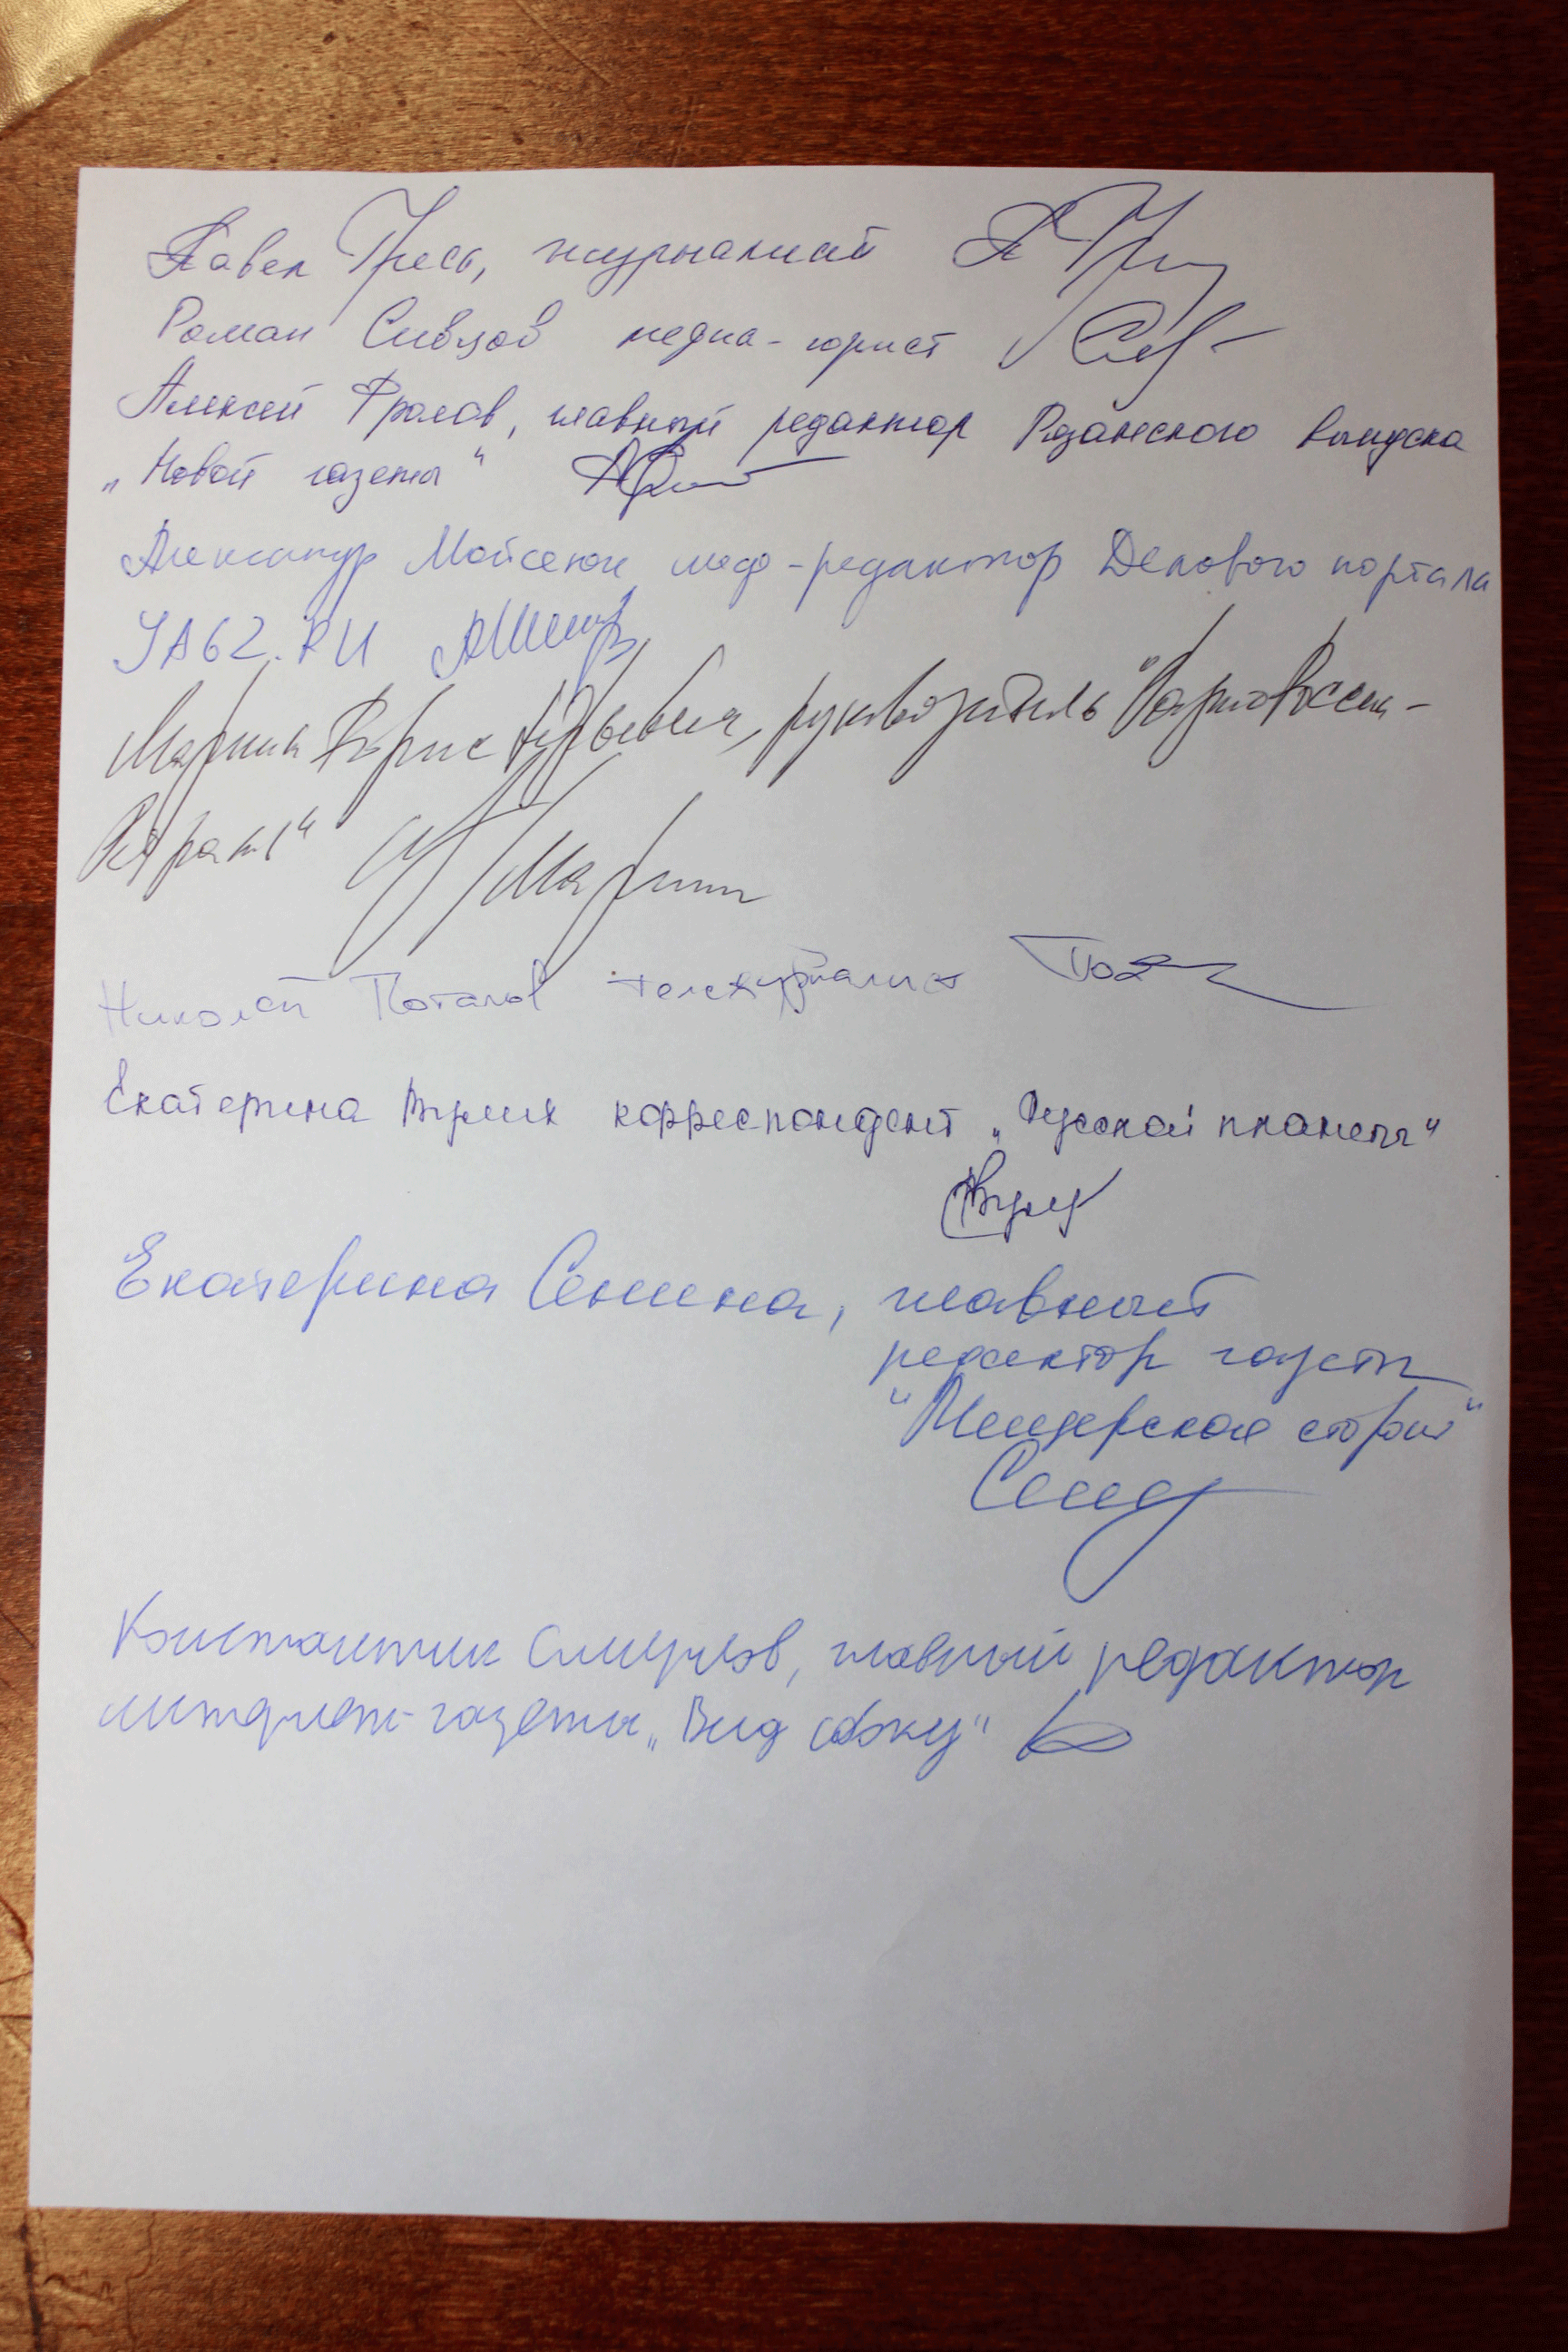 Павел Гресь, журналист
Роман Сивцов медиа-юрист
Алексей Фролов, главный редактор Рязанского выпуска
„Новой газеты“
Александр Мойсеюк шеф-редактор Делового портала
YA62.RU
Марцин Борис руководитель
Николай Потапов тележурналист
Екатерина Вулих корреспондент „Русской планеты“
Екатерина Сенина, главный
редактор газеты
"Мещерская сторона"
Константин Смирнов, главный редактор
интернет-газеты „Вид сбоку“